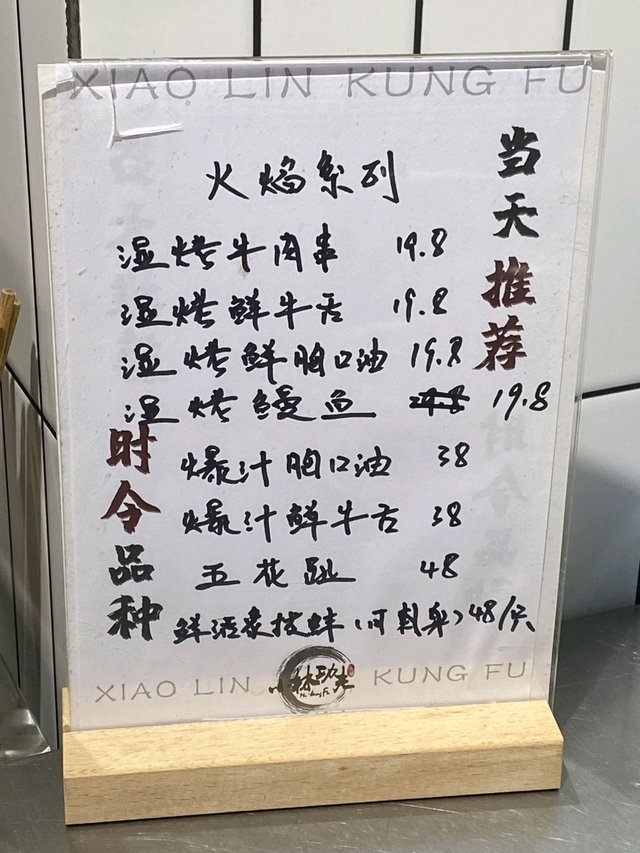 XIAO LIN KUNG FU
当天推荐
火焰系列
湿烤牛肉串 19.8
湿烤鲜牛舌 19.8
湿烤鲜胸口油 19.8
湿烤鳗鱼 19.8
爆汁胸口油 38
爆汁鲜牛舌 38
五花趾 48
鲜活象拔蚌(可刺身)48/只
时令品种
XIAO LIN 小林功夫 KUNG FU